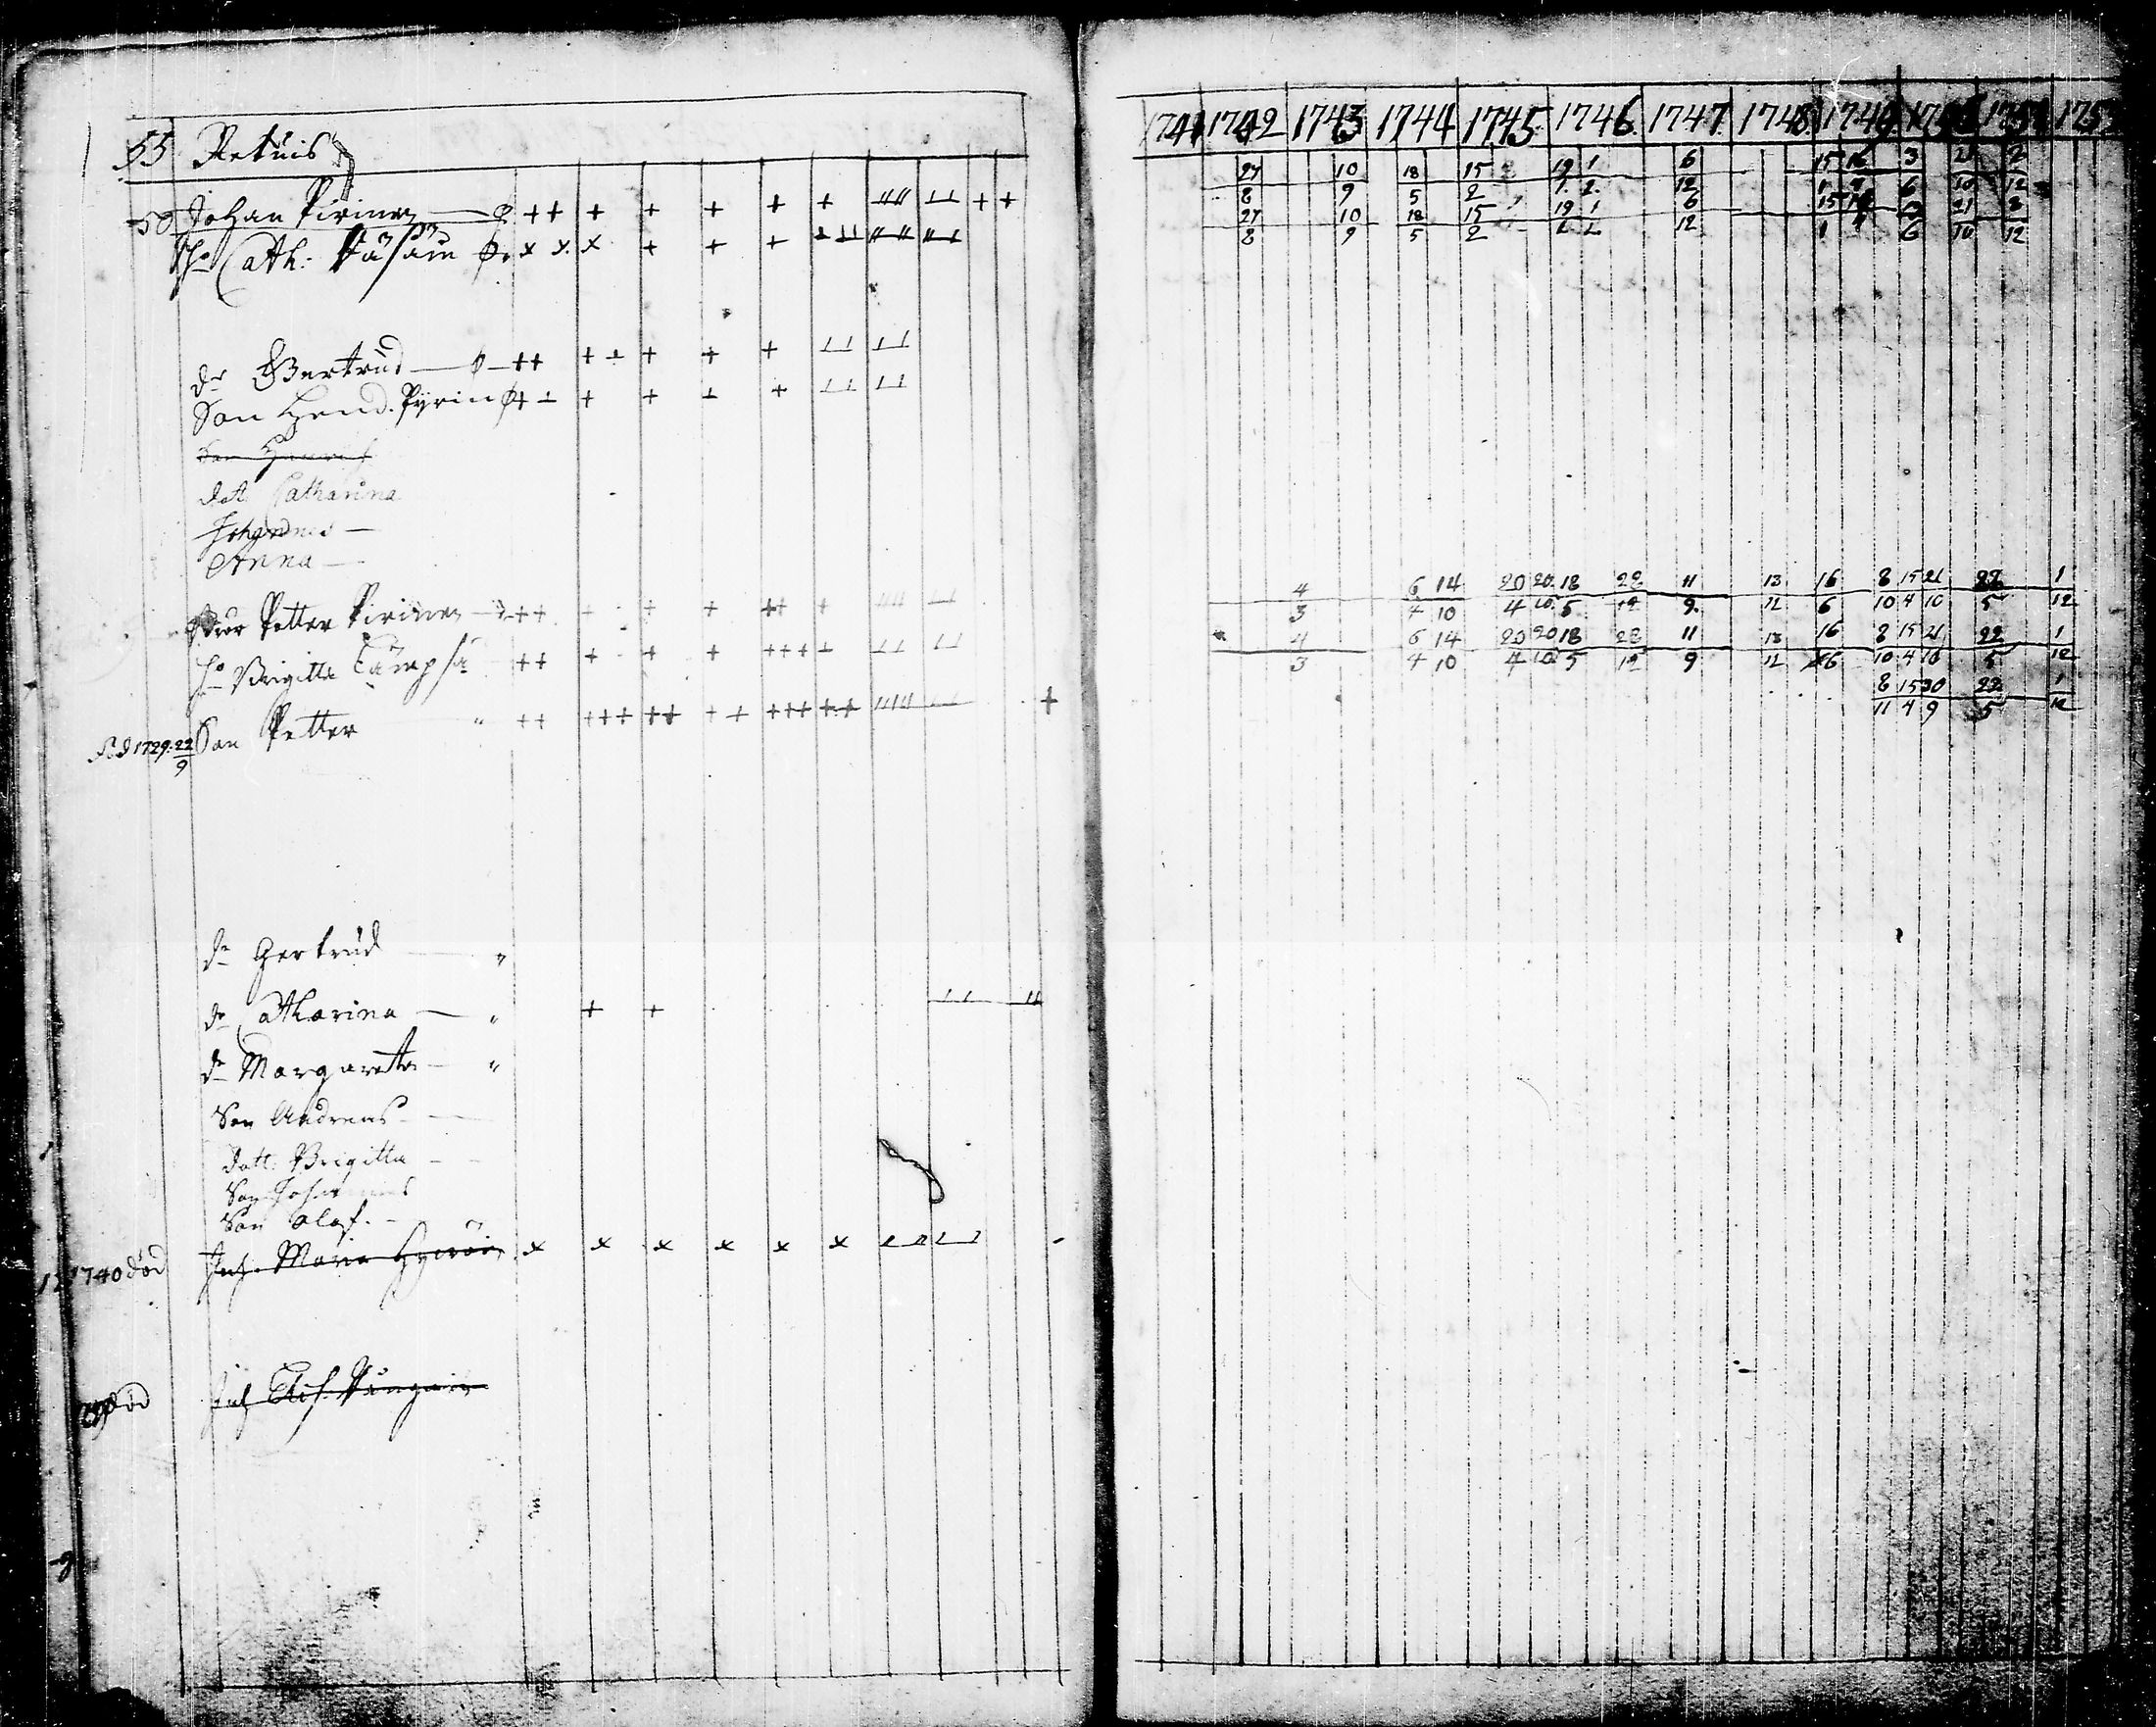 55 Retuis
50 Johan Pirinen
Ho Cath: Väsäin
dr Gertrud
Son Hend. Pyrin
Son Henrich
dot Catharina
Johannes
Anna
Bror Petter Pirinen
Ho Brigitta Tämpsä
född 1729. 22/9 Son Petter
dr Gertrud
dr Catharina
dr Margareta
Son Andreas
Dott. Brigitta
Son Johannes
Son Olof.
1740 död Inh. Maria
död Inh Elis.
1741 1742 1743 1744 1745 1746 1747 1748 1749
27 10 18 15 19 1 6 15 16 3 21 2
8 9 5 2 1 2 12 1 4 6 10 12
27 10 18 15 19 1 6 15 16 3 21 2
8 9 5 2 1 2 12 1 4 6 10 12
4 6 14 20 20 18 28 11 13 16 8 15 21 22 1
3 4 10 4 10 5 12 9 12 6 10 4 10 5 12
4 6 14 20 20 18 28 11 13 16 8 15 21 22 1
3 4 10 4 10 5 12 9 12 6 10 4 10 5 12
8 15 30 22 1
11 4 9 5 12